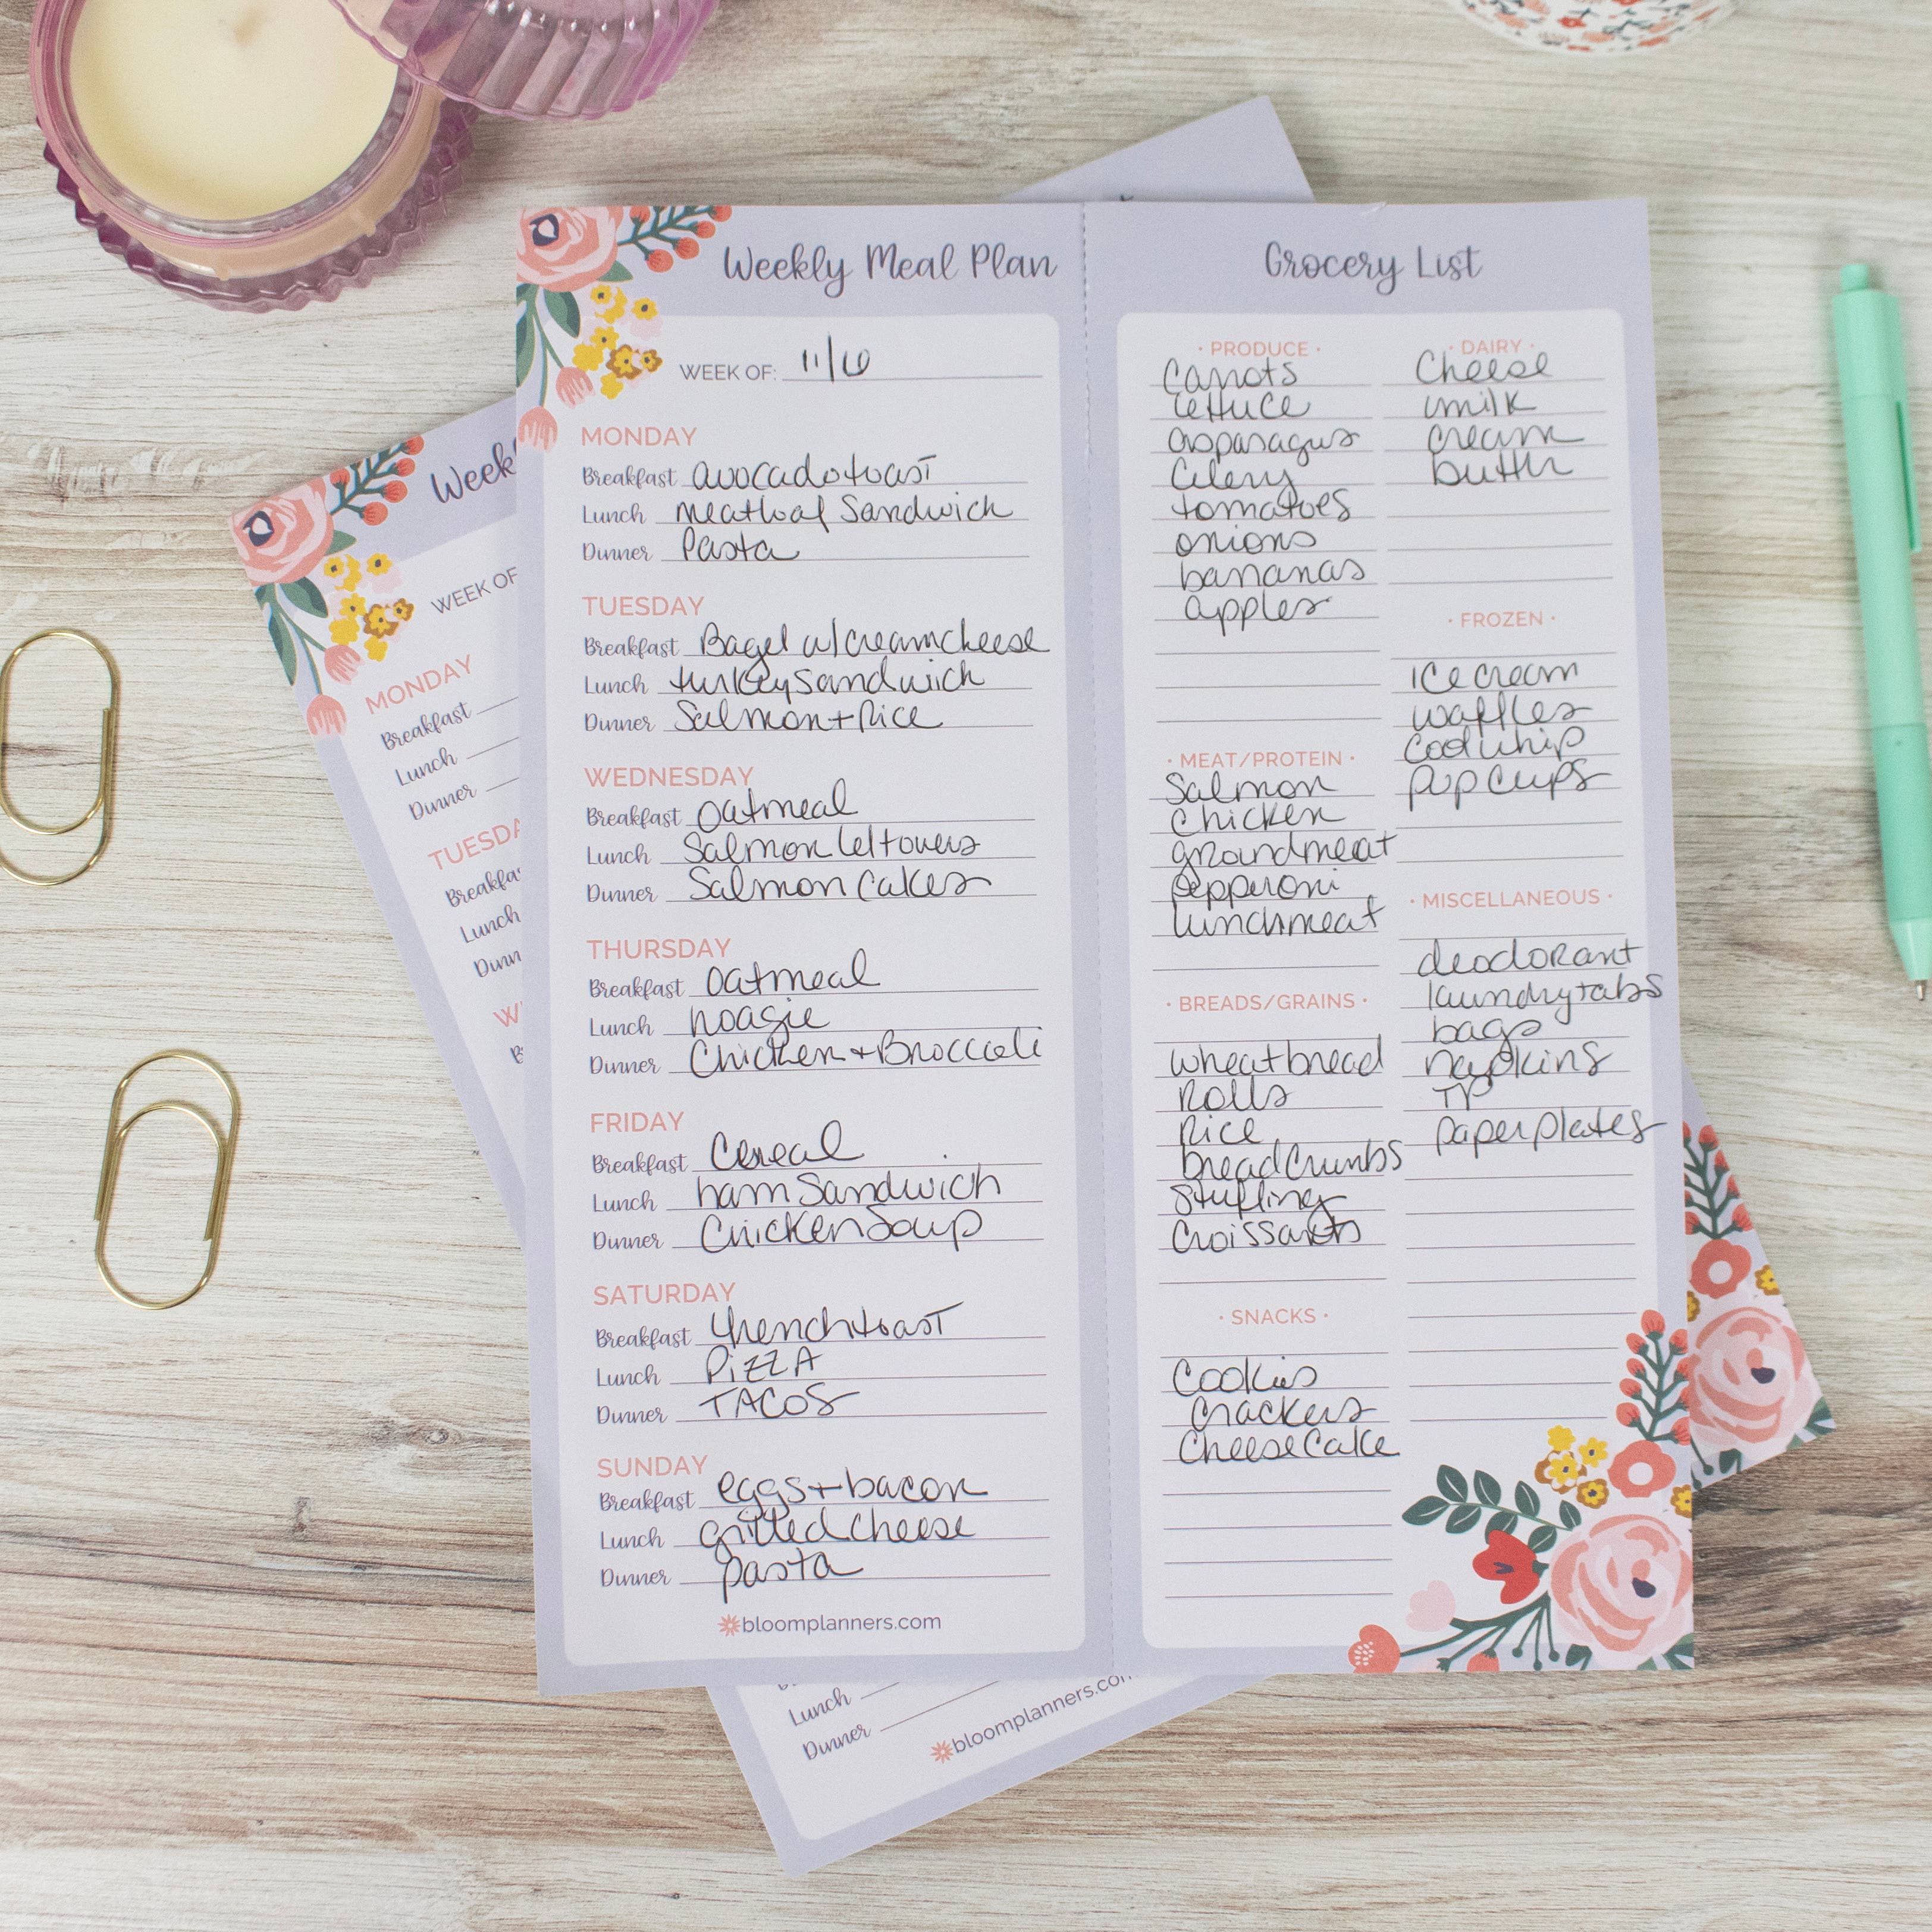 Weekly Meal Plan
WEEK OF: 11/6
MONDAY
Breakfast avocado toast
Lunch meatloaf Sandwich
Dinner Pasta
TUESDAY
Breakfast Bagel w/ creamcheese
Lunch turkey Sandwich
Dinner Salmon + Rice
WEDNESDAY
Breakfast oatmeal
Lunch Salmon leftovers
Dinner Salmon Cakes
THURSDAY
Breakfast oatmeal
Lunch hoagie
Dinner Chicken + Broccoli
FRIDAY
Breakfast Cereal
Lunch ham Sandwich
Dinner Chicken Soup
SATURDAY
Breakfast frenchtoast
Lunch PIZZA
Dinner TACOS
SUNDAY
Breakfast eggs + bacon
Lunch grilled cheese
Dinner pasta
bloomplanners.com
Grocery List
· PRODUCE ·
Carrots
lettuce
asparagus
Celery
tomatoes
onions
bananas
apples
· MEAT/PROTEIN ·
Salmon
Chicken
groundmeat
pepperoni
lunchmeat
· BREADS/GRAINS ·
wheatbread
Rolls
Rice
breadcrumbs
Stuffing
Croissants
· SNACKS ·
Cookies
Crackers
Cheese Cake
· DAIRY ·
Cheese
milk
cream
butter
· FROZEN ·
ice cream
waffles
coolwhip
pup cups
· MISCELLANEOUS ·
deodorant
laundry tabs
bags
napkins
TP
paper plates
Weekl
WEEK OF
MONDAY
Breakfast
Lunch
Dinner
TUESDA
Breakfa
Lunch
Dinn
W
B
Lunch
Dinner
bloomplanners.com